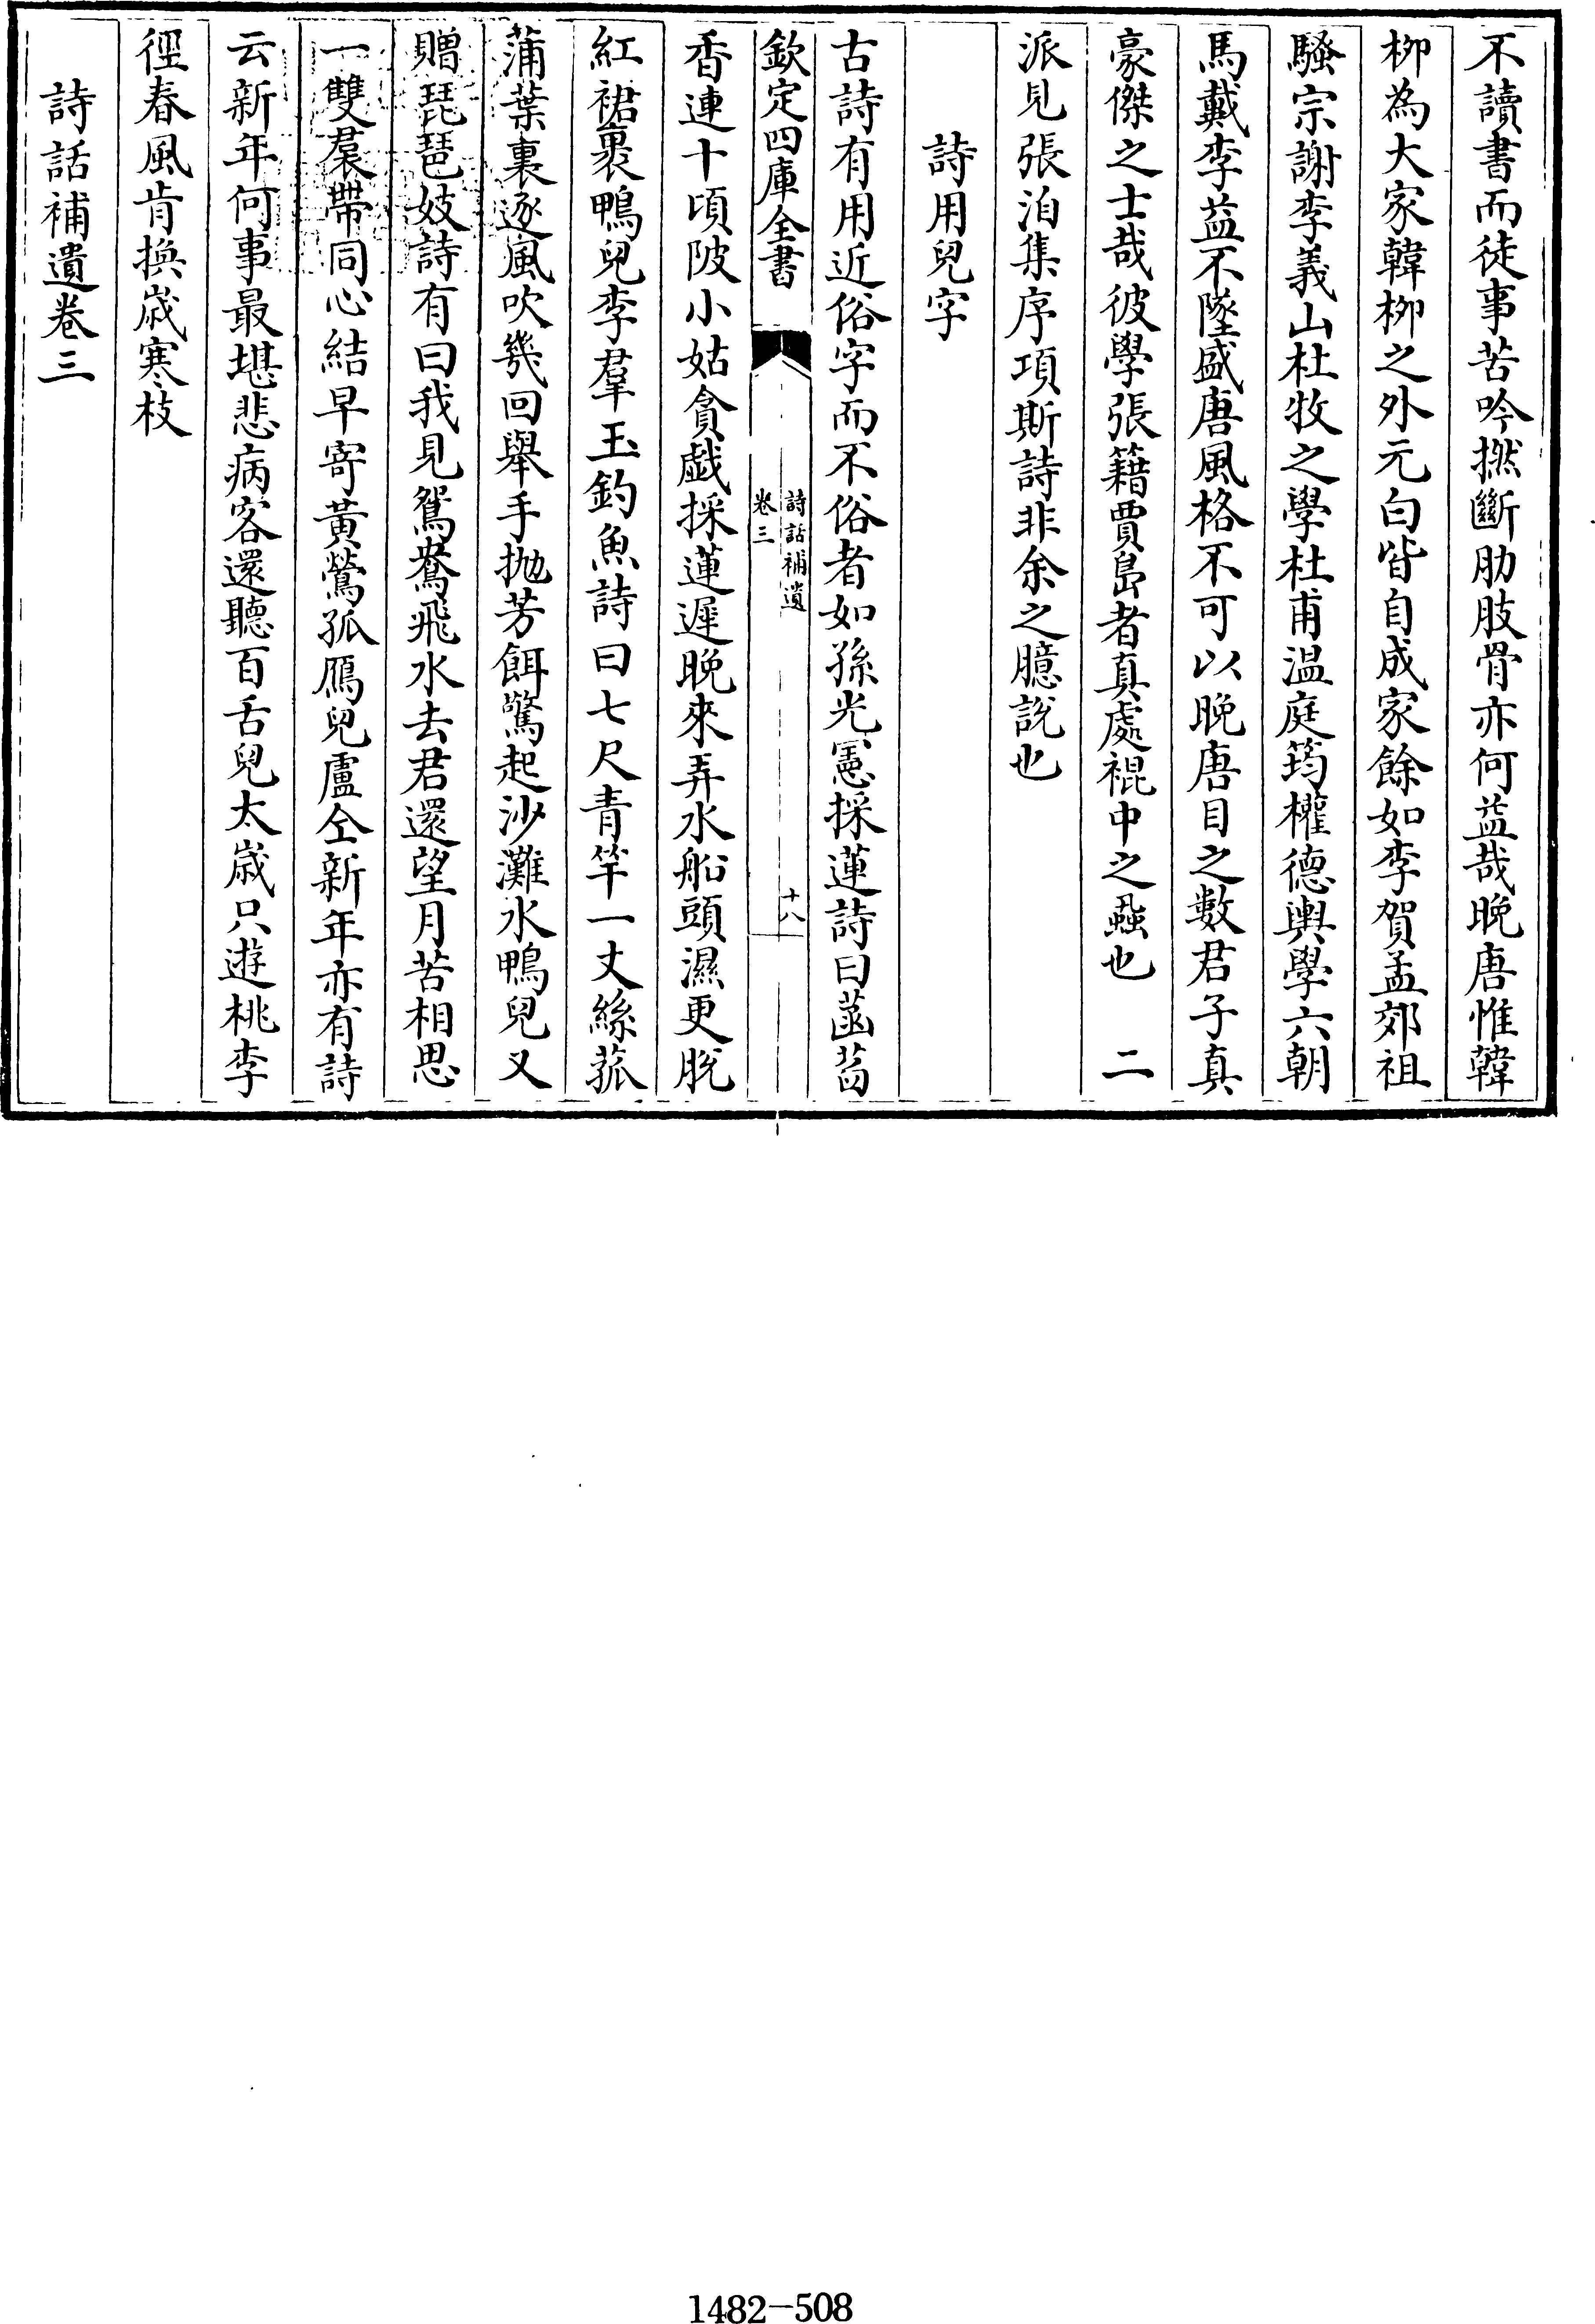 不讀書而徒事苦吟撚斷肋肢骨亦何益哉晚唐惟韓
栁為大家韓栁之外元白皆自成家餘如李賀孟郊祖
騷宗謝李義山杜牧之學杜甫温庭筠權德輿學六朝
馬戴李益不墜盛唐風格不可以晚唐目之數君子真
豪傑之士哉彼學張籍賈島者真處裩中之蝨也　二
派見張洎集序項斯詩非余之臆說也
詩用兒字
古詩有用近俗字而不俗者如孫光憲採蓮詩曰菡萏
欽定四庫全書
詩話補遺
卷三
十八
香連十頃陂小姑貪戲採蓮遲晚來弄水船頭濕更脫
紅裙裹鴨兒李羣玉釣魚詩曰七尺青竿一丈絲菰
蒲葉裏逐風吹幾回舉手抛芳餌驚起沙灘水鴨兒又
贈琵琶妓詩有曰我見鴛鴦飛水去君還望月苦相思
一雙裙帶同心結早寄黃鶯孤鴈兒盧仝新年亦有詩
云新年何事最堪悲病客還聽百舌兒太歲只遊桃李
徑春風肯換歲寒枝
詩話補遺卷三
1482-508